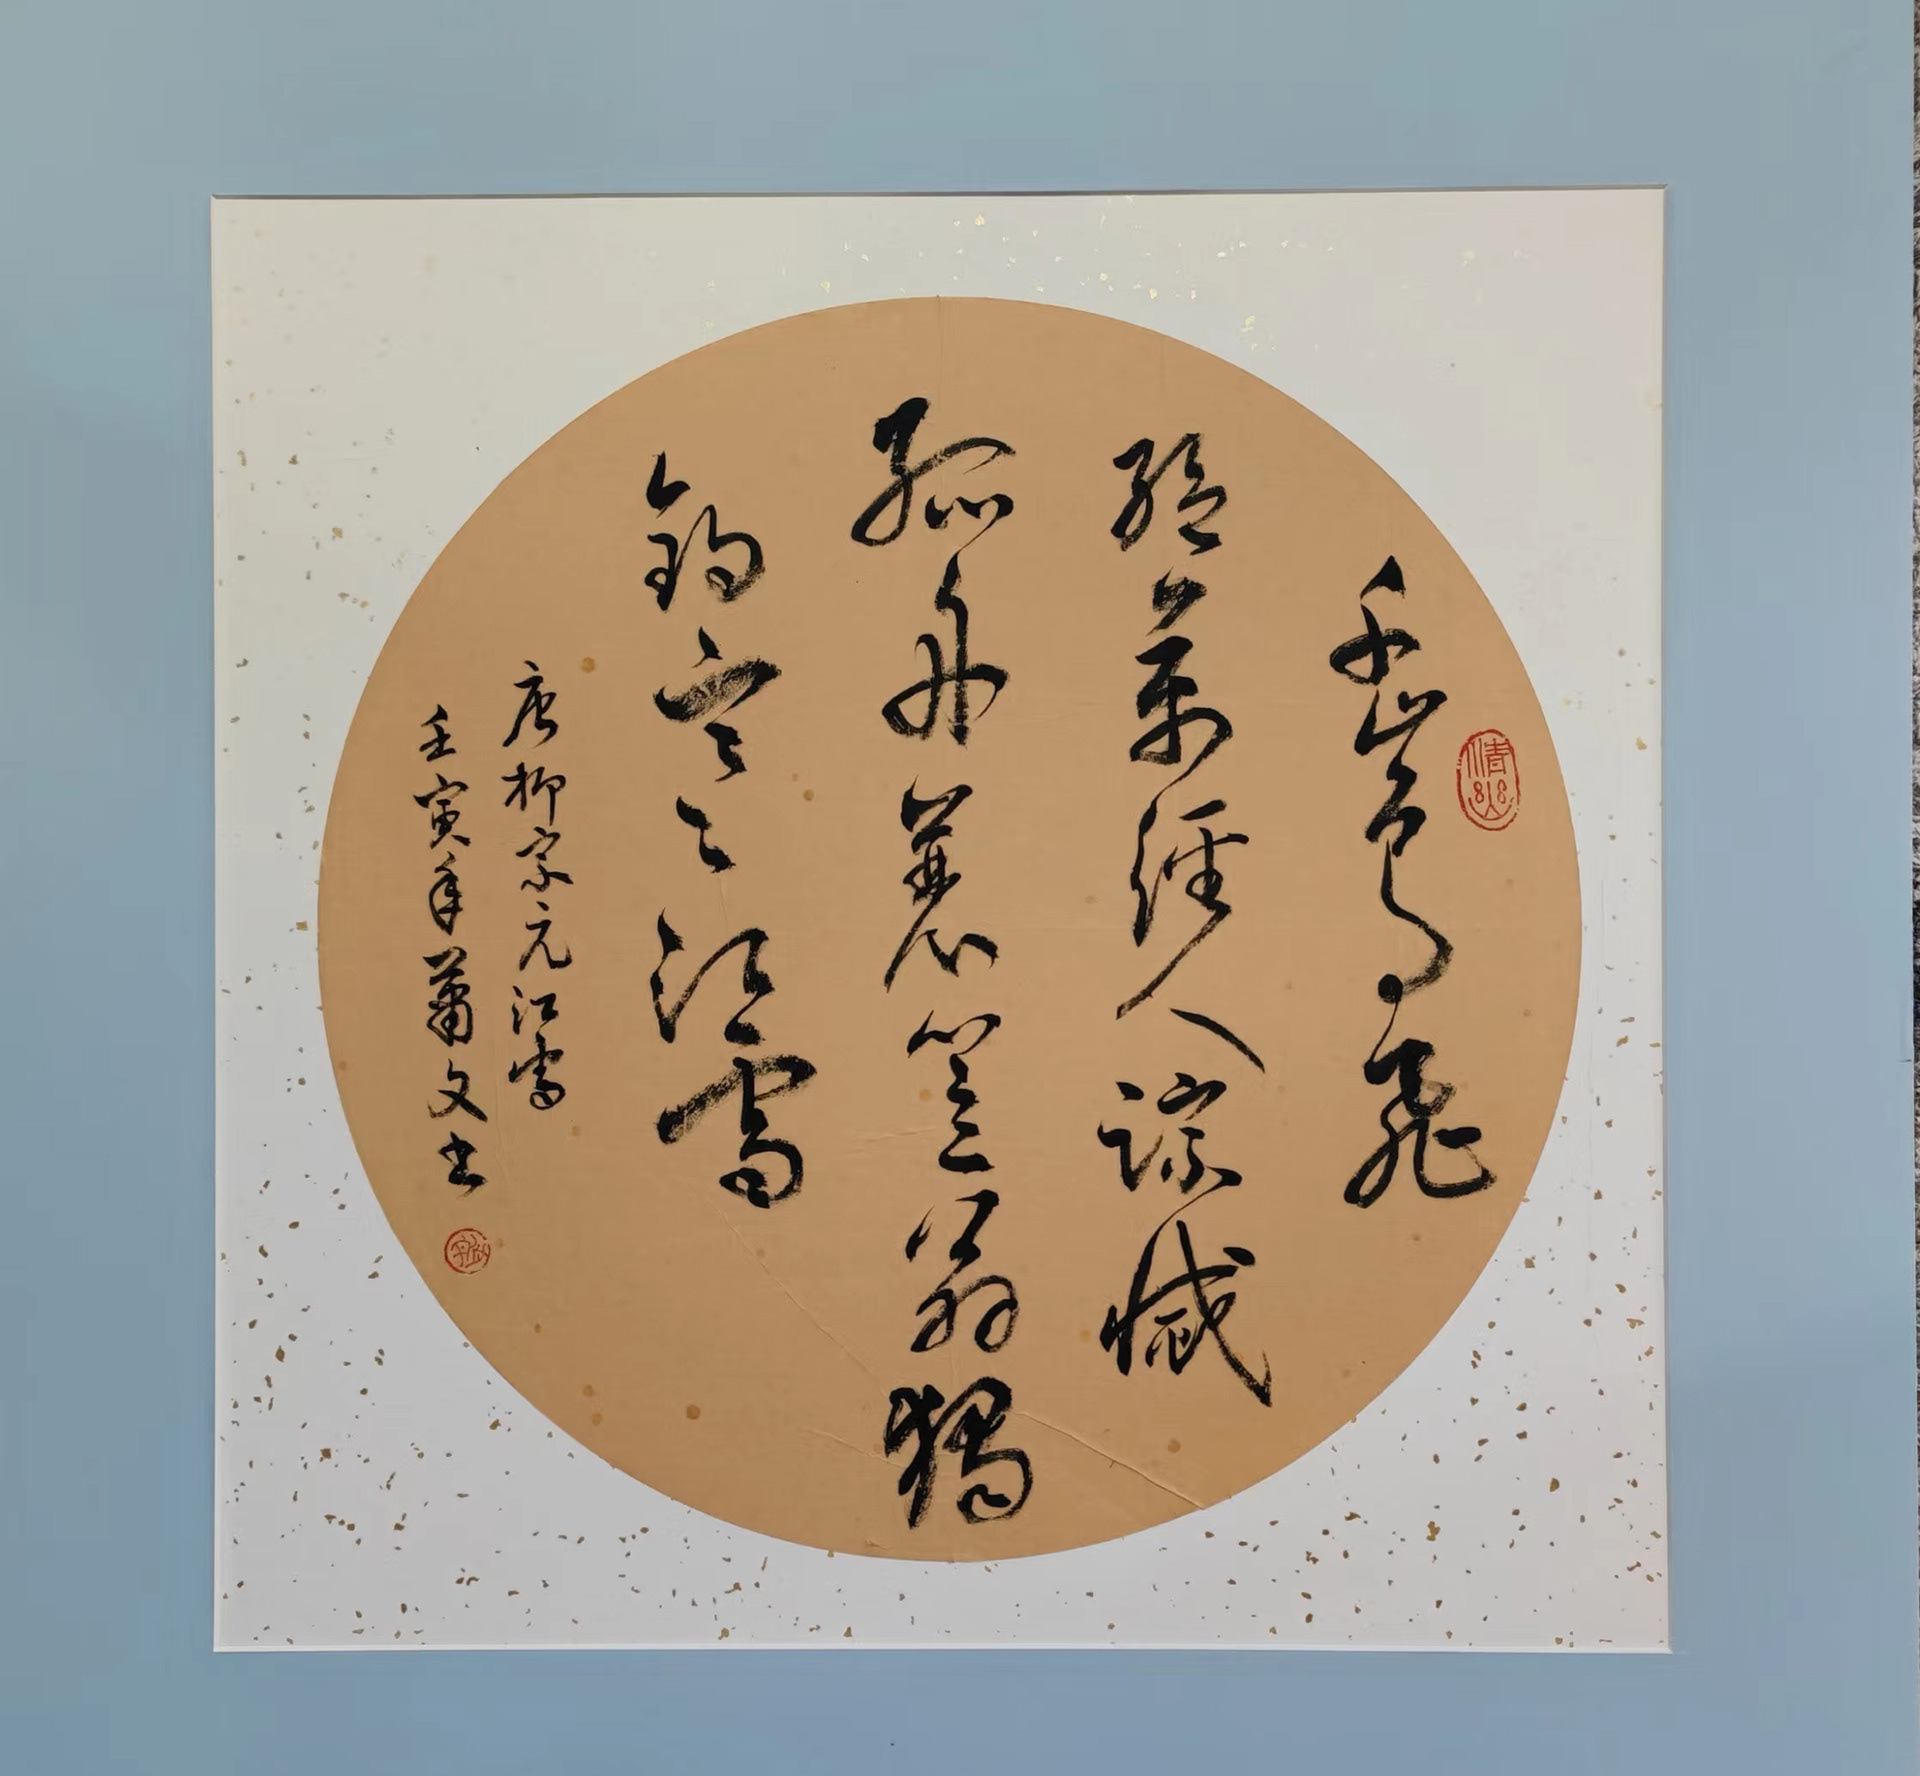 千山鳥飛
絕萬徑人踪滅
孤舟蓑笠翁獨
釣寒江雪
唐柳宗元江雪
壬寅年蕭文书
清幽